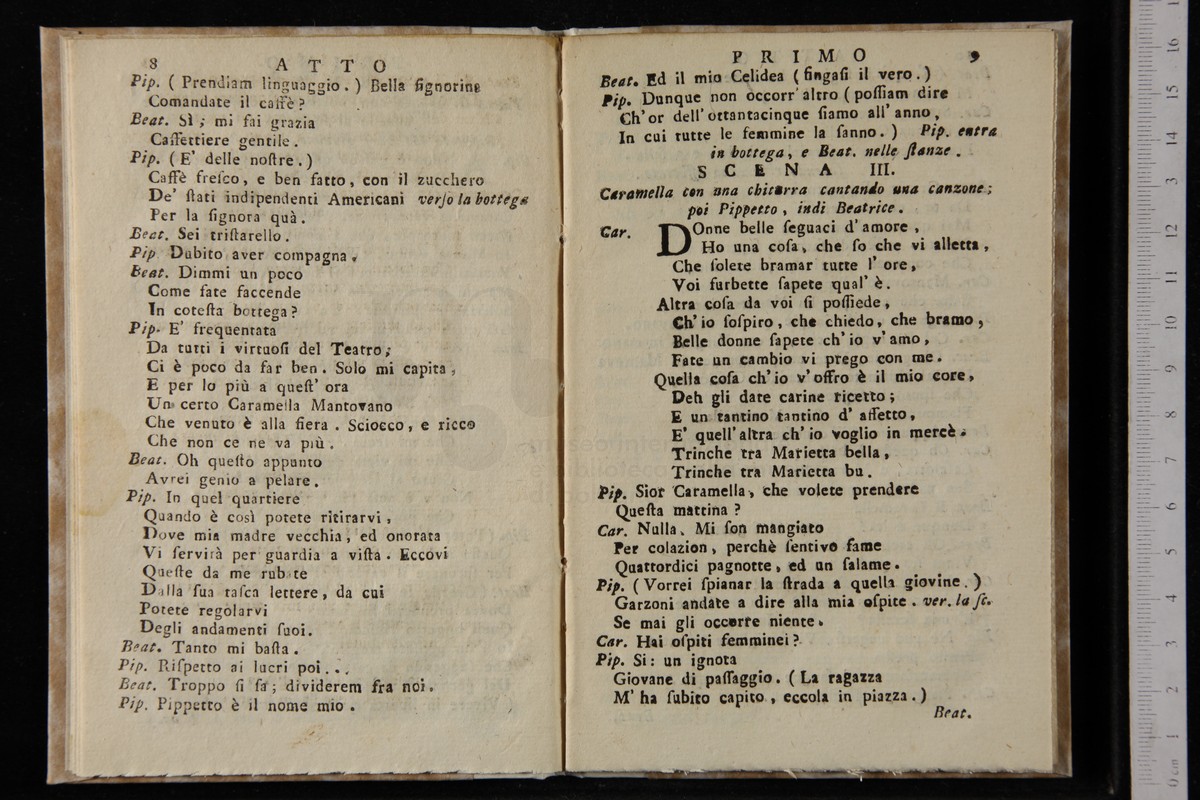 8 ATTO
Pip. ( Prendiam linguaggio . ) Bella ſignorina
Comandate il caffè ?
Beat. Sì ; mi fai grazia
Caffettiere gentile .
Pip. ( E' delle noſtre . )
Caffè freſco , e ben fatto , con il zucchero
De' ſtati indipendenti Americani verſo la bottega
Per la ſignora quà .
Beat. Sei triſtarello .
Pip Dubito aver compagna .
Beat. Dimmi un poco
Come fate faccende
In coteſta bottega ?
Pip. E' frequentata
Da tutti i virtuoſi del Teatro ;
Ci è poco da far ben . Solo mi capita ,
E per lo più a queſt' ora
Un certo Caramella Mantovano
Che venuto è alla fiera . Sciocco , e ricco
Che non ce ne va più .
Beat. Oh queſto appunto
Avrei genio a pelare .
Pip. In quel quartiere
Quando è così potete ritirarvi ,
Dove mia madre vecchia , ed onorata
Vi ſervirà per guardia a viſta . Eccovi
Queſte da me rubate
Dalla ſua taſca lettere , da cui
Potete regolarvi
Degli andamenti ſuoi .
Beat. Tanto mi baſta .
Pip. Riſpetto ai lucri poi . . .
Beat. Troppo ſi ſa ; dividerem fra noi .
Pip. Pippetto è il nome mio .
PRIMO 9
Beat. Ed il mio Celidea ( fingaſi il vero . )
Pip. Dunque non occorr' altro ( poſſiam dire
Ch' or dell' ottantacinque ſiamo all' anno ,
In cui tutte le femmine la fanno . ) Pip. entra
in bottega , e Beat. nelle ſtanze .
SCENA III.
Caramella con una chitarra cantando una canzone ;
poi Pippetto , indi Beatrice .
Car. DOnne belle ſeguaci d' amore ,
Ho una coſa , che ſo che vi alletta ,
Che ſolete bramar tutte l' ore ,
Voi furbette ſapete qual' è .
Altra coſa da voi ſi poſſiede ,
Ch' io ſoſpiro , che chiedo , che bramo ,
Belle donne ſapete ch' io v' amo ,
Fate un cambio vi prego con me .
Quella coſa ch' io v' offro è il mio core ,
Deh gli date carine ricetto ;
E un tantino tantino d' affetto ,
E' quell' altra ch' io voglio in mercè .
Trinche tra Marietta bella ,
Trinche tra Marietta bu .
Pip. Sior Caramella , che volete prendere
Queſta mattina ?
Car. Nulla . Mi ſon mangiato
Per colazion , perchè ſentivo fame
Quattordici pagnotte , ed un ſalame .
Pip. ( Vorrei ſpianar la ſtrada a quella giovine . )
Garzoni andate a dire alla mia oſpite . ver. la ſc.
Se mai gli occorre niente .
Car. Hai oſpiti femminei ?
Pip. Si : un ignota
Giovane di paſſaggio . ( La ragazza
M' ha ſubito capito , eccola in piazza . )
Beat.